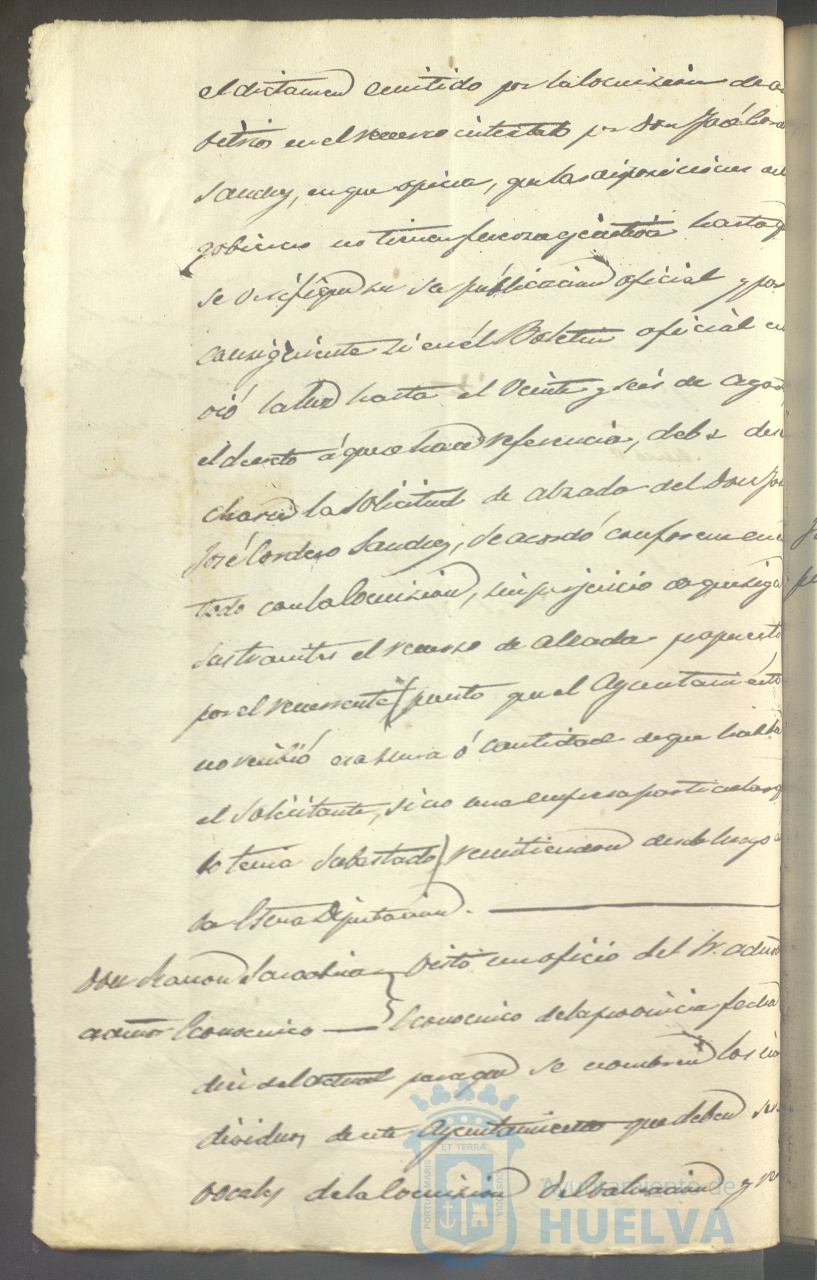 el dictamen emitido por la Comision de ar
vitrios en el recurso intentado por Don José Cordero
Sanchez, en que opina, que las disposiciones del
gobierno no tienen fuerza hasta q
se verifique en su publicacion oficial y por
consiguiente si en el Boletin oficial no
vió la luz hasta el veinte y seis de agos
el decreto á que se hace referencia, debe dese
charse la solicitud de alzada del Don
José Cordero Sanchez, se acordó conforme en
todo con la Comision, sin perjuicio de que siga
sus tramites el recurso de alzada propuesto
por el recurrente (puesto que el Ayuntamiento
no recibió esa suma ó cantidad de que habla
el solicitante, sino una empresa particular q
lo tenia subastado) remitiendose desde luego a
la Exma Diputacion.
Don Ramon
admor Economico
Visto un oficio del Sr. admor
Economico de la provincia fecha
diez del actual para que se nombren los in
dividuos de este Ayuntamiento que deben ser
vocales de la Comision de valuacion y re
PORTUS MARIS ET TERRAE CUSTODIA
Ayuntamiento de
HUELVA